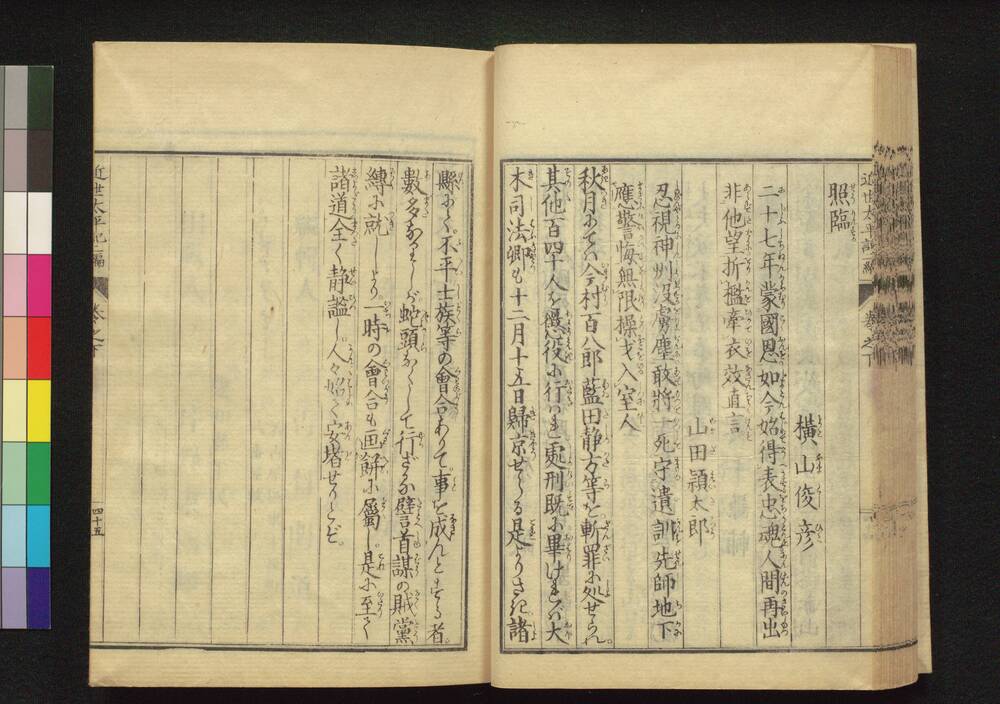 照臨
横山俊彦
二十七年蒙國恩如今始得表忠魂人間再出
非他望折檻牽衣效直言
山田頴太郎
忍視神州没虜塵敢將一死守遺訓先師地下
應警悔無限操戈入室人
秋月にてハ今村百八郎藍田静方等を斬罪に処せられ
其他百四十人を懲役に行はれ處刑既に畢けれハ大
木司法卿も十二月十五日歸京せらる是よりさき諸
縣にて不平士族等の會合ありて事を成んとする者
數多ありしが蛇頭にして行ざる 首謀の賊黨
縛に就しより一時の會合も画餅に屬し是に至て
諸道全く静謐し人々始て安堵せりとぞ
近世太平記二編
巻之下
四十五